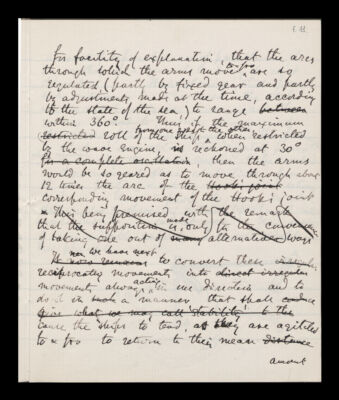 f. 11
for facility of explanation, that the arcs
through which the arms move to & fro are so
regulated (partly by fixed gear and partly
by adjustments made at the time, according
to the state of the sea) to range between
within 360°. Thus if the maximum
restricted roll of the ship, when restricted
by the wave engine, is reckoned at 30°
for a complete oscillation, then the arms
would be so geared as to move through about
12 times the arc of the Hooks joint
corresponding movement of the Hooks joint
This being premised with the remark
that the supposition is made only for the convenience
of taking one out of many alternative ways
we have next
It now remains to convert these
reciprocatory movements into direct irregular
movements always acting in one direction and to
do it in such a manner that shall conduce
give what we may call 'stability' to the
cause the ships to tend, as they are agitated
to & fro to return to their mean distance
amount